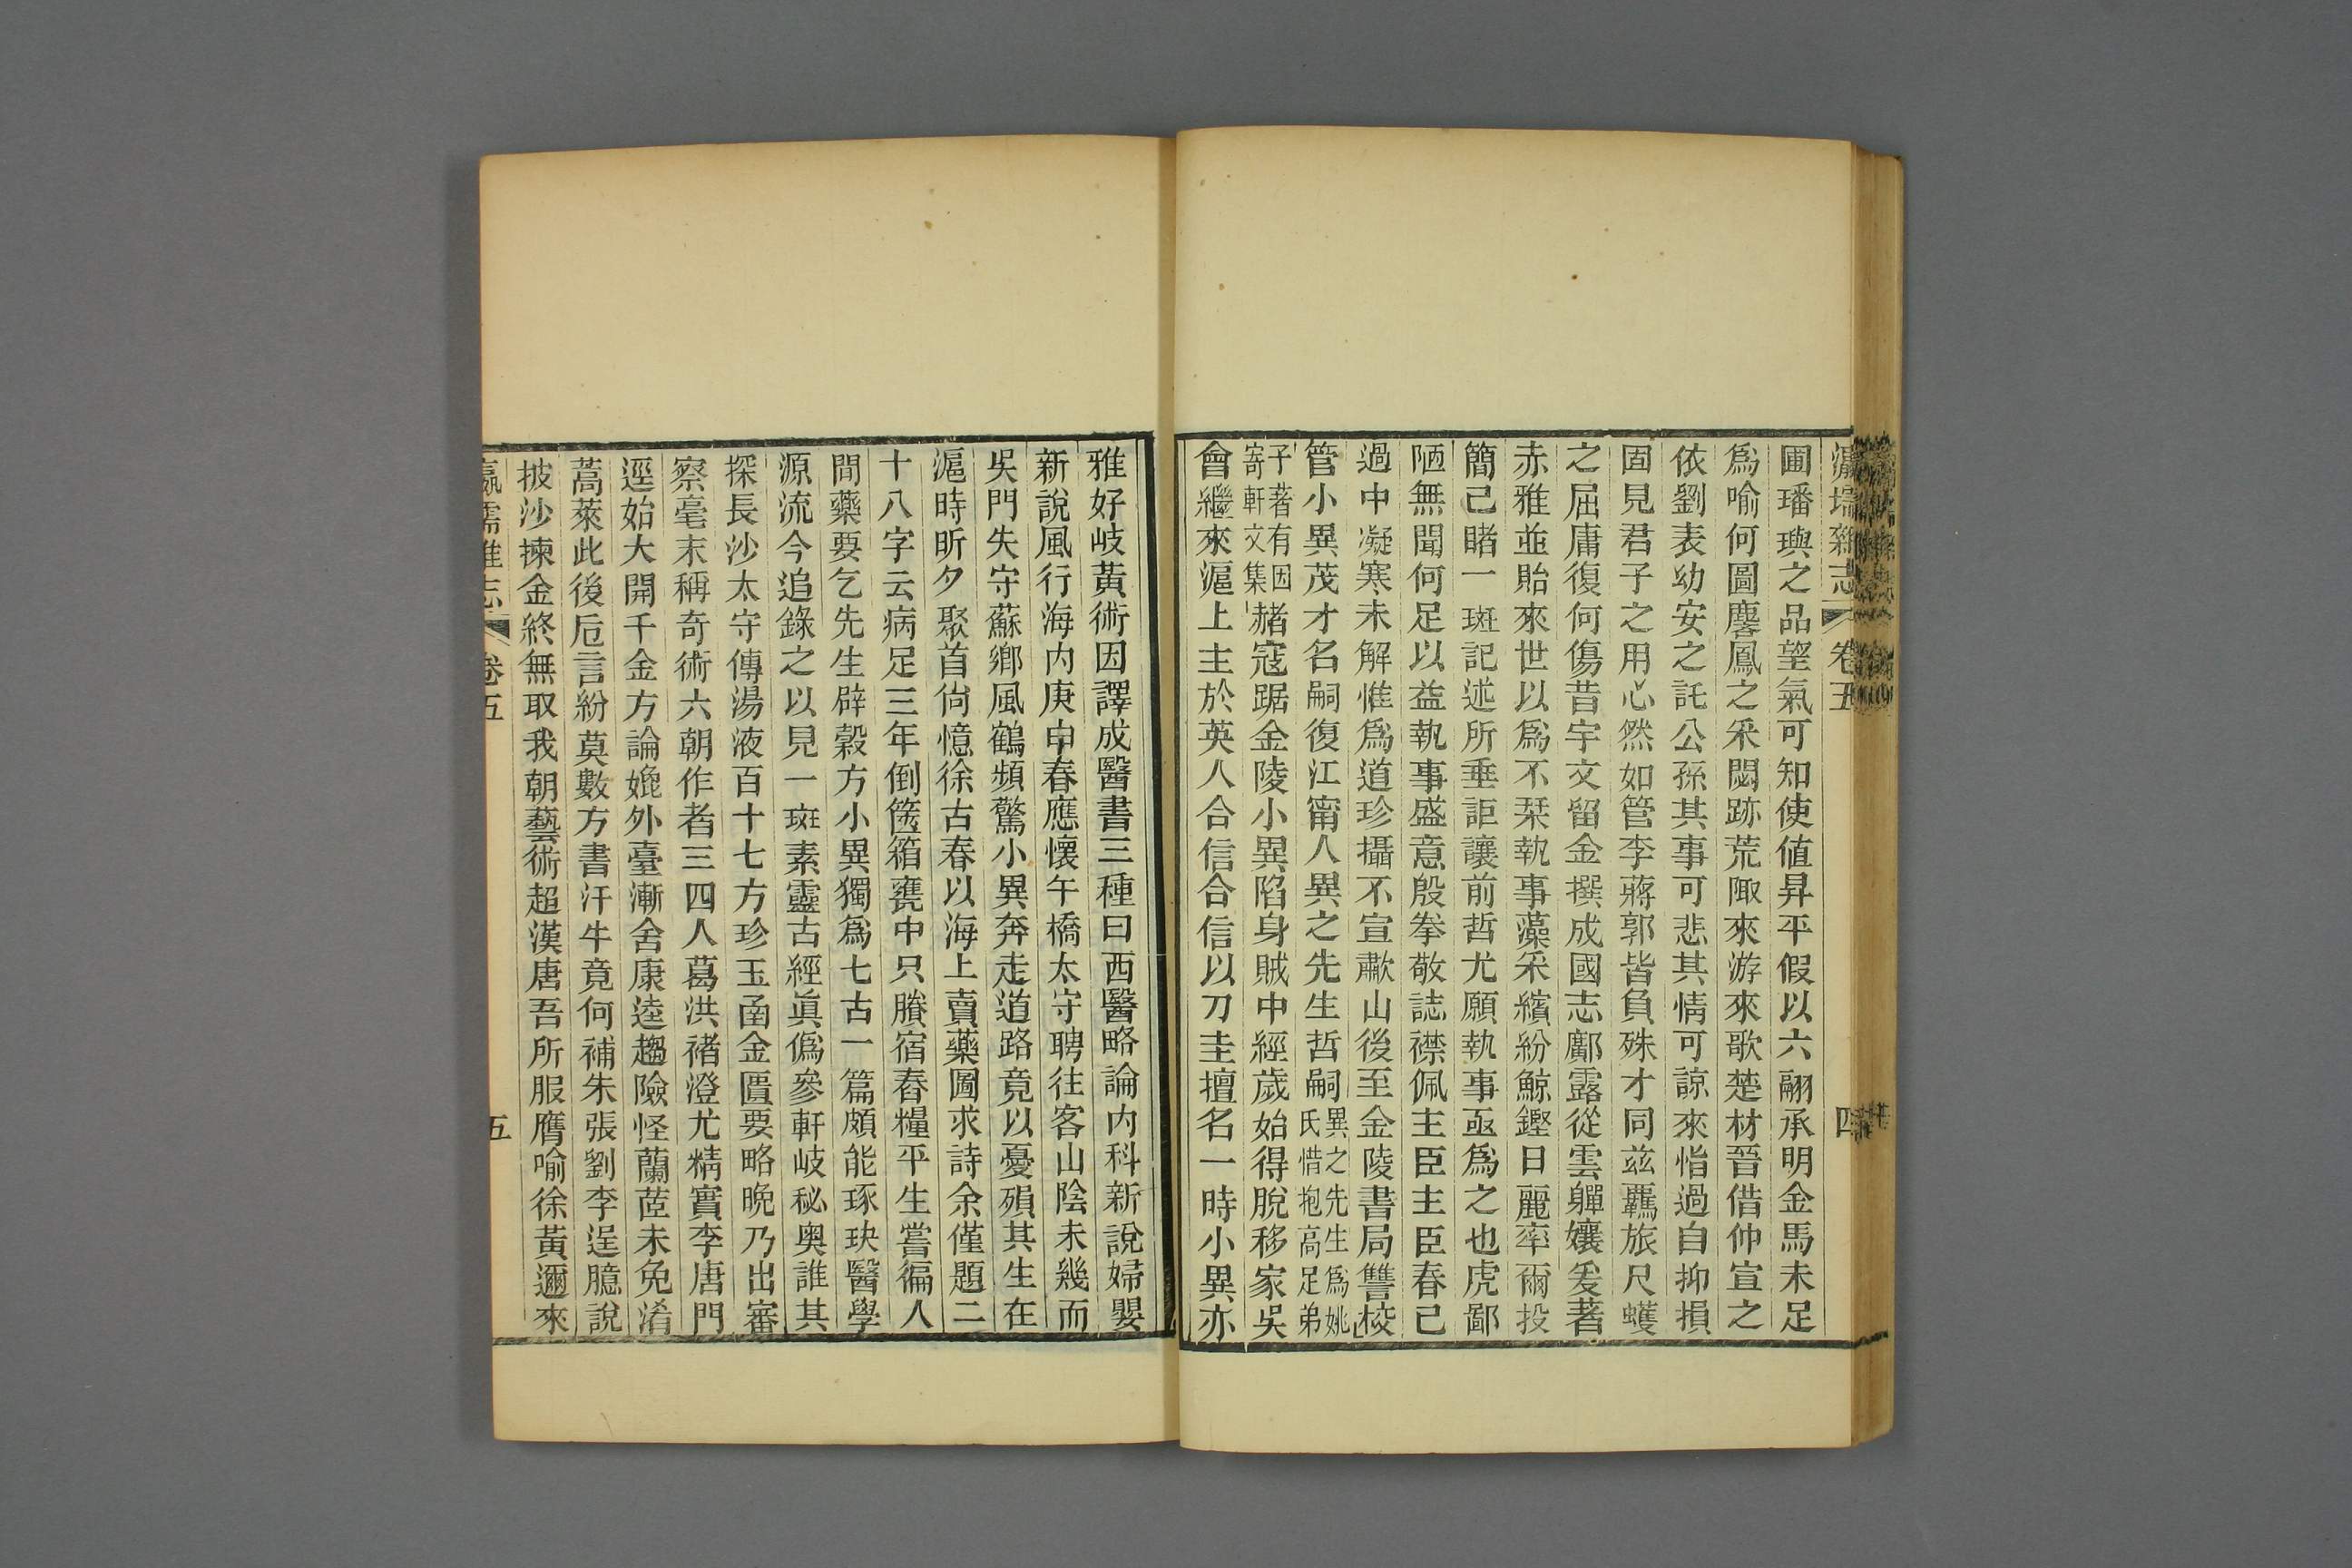 瀛壖雜志 卷五 四
圃璠璵之品望氣可知使値昇平假以六翮承明金馬未足
爲喻何圖麐鳳之采閟跡荒陬來游來歌楚材晉借仲宣之
依劉表幼安之託公孫其事可悲其情可諒來恉過自抑損
固見君子之用心然如管李蔣郭皆負殊才同玆羈旅尺蠖
之屈庸復何傷昔宇文留金撰成國志鄺露從雲軃孃爰著
赤雅並貽來世以爲不栞執事藻采繽紛鯨鏗日麗率爾投
簡已睹一斑記述所垂詎讓前哲尤願執事亟爲之也虎鄙
陋無聞何足以益執事盛意殷拳敬誌襟佩主臣主臣春已
過中凝寒未解惟爲道珍攝不宣歗山後至金陵書局讐校
管小異茂才名嗣復江甯人異之先生哲嗣異之先生爲姚氏惜抱高足弟
子著有因寄軒文集赭寇踞金陵小異陷身賊中經歲始得脫移家吳
會繼來滬上主於英人合信合信以刀圭擅名一時小異亦
雅好岐黃術因譯成醫書三種曰西醫略論內科新說婦嬰
新說風行海內庚申春應懷午橋太守聘往客山陰未幾而
吳門失守蘇鄉風鶴頻驚小異奔走道路竟以憂殞其生在
滬時昕夕聚首尙憶徐古春以海上賣藥圖求詩余僅題二
十八字云病足三年倒篋箱甕中只賸宿舂糧平生嘗徧人
間藥要乞先生辟穀方小異獨爲七古一篇頗能琢玦醫學
源流今追錄之以見一斑素靈古經眞僞參軒岐秘奧誰其
探長沙太守傳湯液百十七方珍玉函金匱要略晩乃出審
察毫末稱奇術六朝作者三四人葛洪褚澄尤精實李唐門
逕始大開千金方論媲外臺漸舍康逵趨險怪蘭茝未免淆
蒿萊此後卮言紛莫數方書汗牛竟何補朱張劉李逞臆說
披沙揀金終無取我朝藝術超漢唐吾所服膺喻徐黃邇來
瀛壖雜志 卷五 五